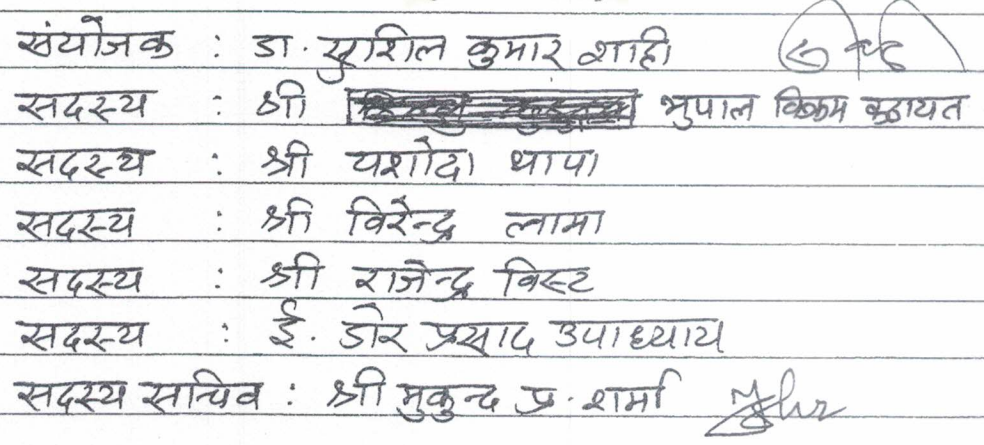 संयोजक : डा. सुशिल कुमार शाही
सदस्य : श्री भुपाल विक्रम कठायत
सदस्य : श्री यशोदा थापा
सदस्य : श्री विरेन्द्र लामा
सदस्य : श्री राजेन्द्र विस्ट
सदस्य : ई. डोर प्रसाद उपाध्याय
सदस्य सचिव : श्री मुकुन्द प्र. शर्मा